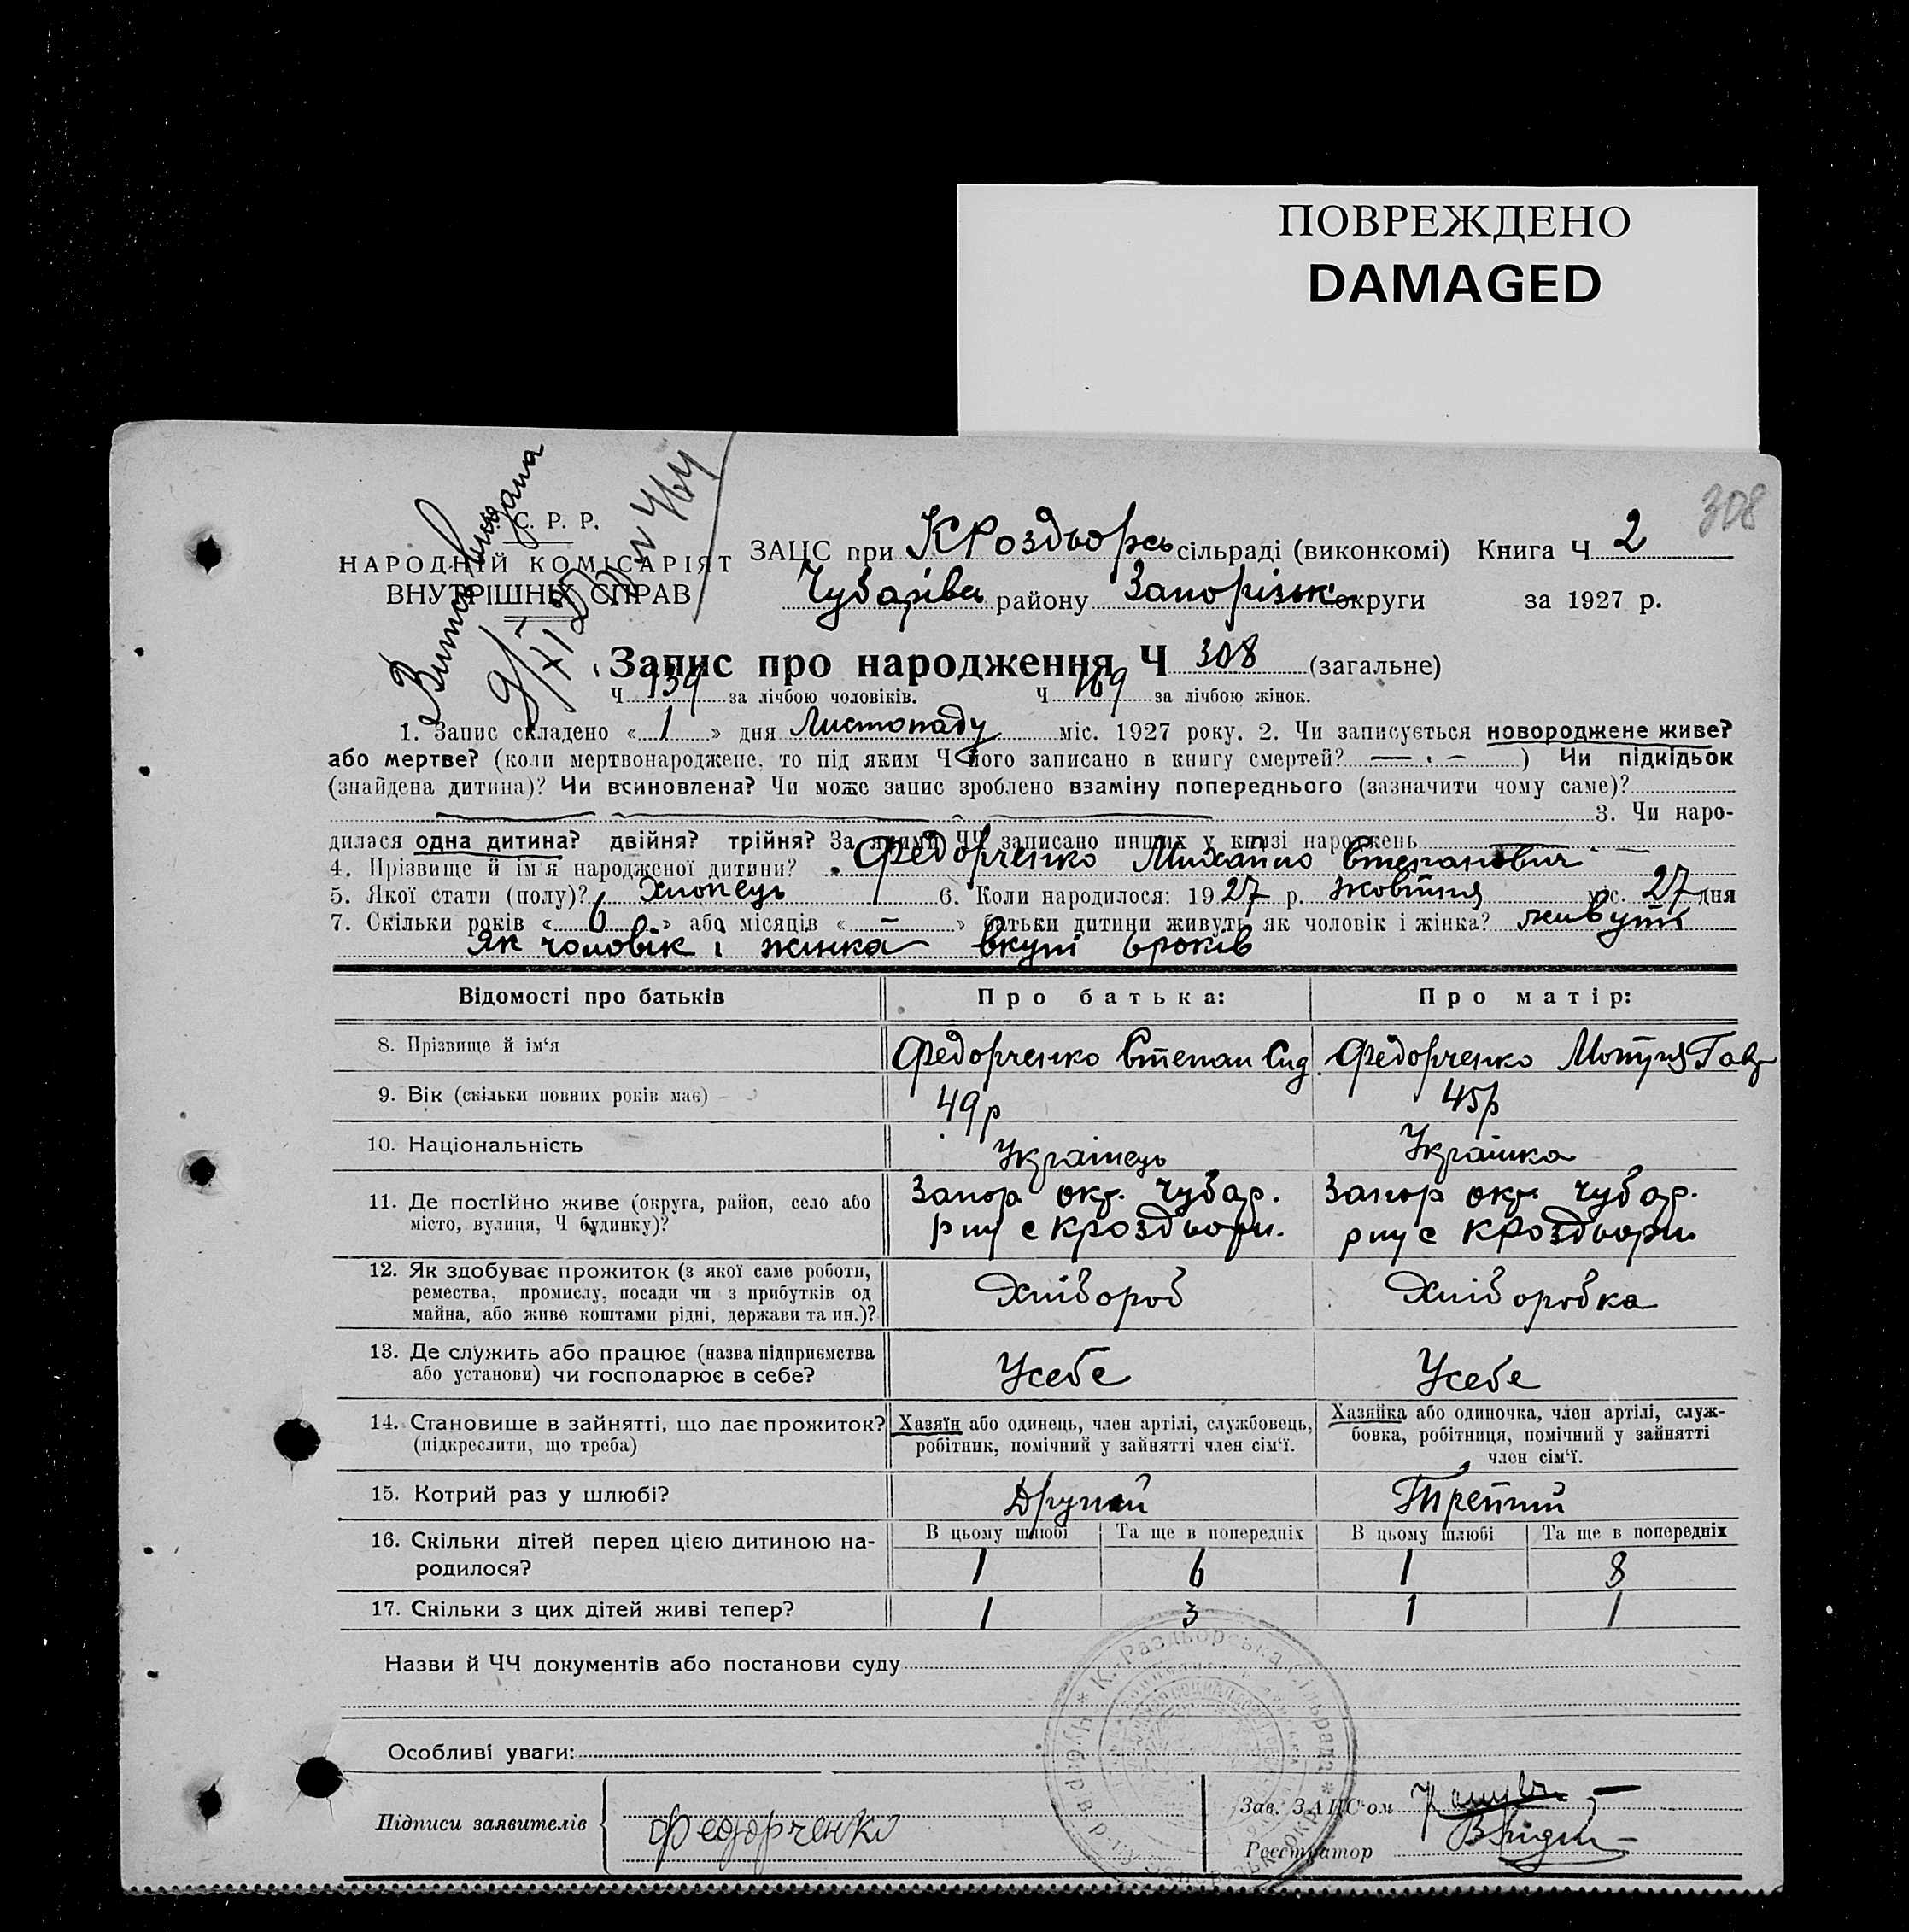 ПОВРЕЖДЕНО
DAMAGED
308
Витяг видана
С. Р. Р.
НАРОДНІЙ КОМІСАРІЯТ
ВНУТРІШНІХ СПРАВ
ЗАЦС при КРоздорсь сільраді (виконкомі) Книга Ч 2
Чубарівс району Запорізьк округи за 1927 р.
Запис про народження Ч 308 (загальне)
Ч 139 за лічбою чоловіків. Ч 169 за лічбою жінок.
1. Запис складено « 1 » дня Листопаду міс. 1927 року. 2. Чи записується новороджене живе?
або мертве? (коли мертвонароджене, то під яким Ч його записано в книгу смертей? — . — ) Чи підкідьок
(знайдена дитина)? Чи всиновлена? Чи може запис зроблено взаміну попереднього (зазначити чому саме)?
3. Чи наро-
дилася одна дитина? двійня? трійня? За якими ЧЧ записано инших у книзі народжень
4. Прізвище й ім'я народженої дитини? Федорченко Михайло Степанович
5. Якої стати (полу)? Хлопець 6. Коли народилося: 1927 р. жовтня міс. 27 дня
7. Скільки років « 6 » або місяців « – » батьки дитини живуть як чоловік і жінка? живуть
як чоловік і жінка вкупі 6 років
Відомості про батьків Про батька: Про матір:
8. Прізвище й ім'я Федорченко Степан Сид. Федорченко Мотря Гавр
9. Вік (скільки повних років має) 49р 45р
10. Національність Українець Українка
11. Де постійно живе (округа, район, село або Запор окр. Чубар. Запор окр. Чубар.
місто, вулиця, Ч будинку)? рну с Кроздори. рну с Кроздори
12. Як здобуває прожиток (з якої саме роботи,
ремества, промислу, посади чи з прибутків од Хлібороб Хліборобка
майна, або живе коштами рідні, держави та ин.)?
13. Де служить або працює (назва підприємства
або установи) чи господарює в себе? Усебе Усебе
14. Становище в зайнятті, що дає прожиток? Хазяїн або одинець, член артілі, службовець, Хазяйка або одиночка, член артілі, служ-
(підкреслити, що треба) робітник, помічний у зайнятті член сім'ї. бовка, робітниця, помічний у зайнятті
член сім'ї.
15. Котрий раз у шлюбі? Другий Третій
16. Скільки дітей перед цією дитиною на- В цьому шлюбі Та ще в попередніх В цьому шлюбі Та ще в попередніх
родилося? 1 6 1 8
17. Скільки з цих дітей живі тепер? 1 3 1 1
Назви й ЧЧ документів або постанови суду
К.-Раздьорська Сільрада * Чубарів р-ну
Особливі уваги:
Підписи заявителів Федорченко
Зав. ЗАЦС'ом
Реєстратор